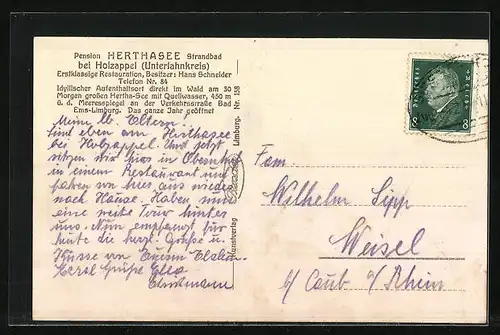 Pension HERTHASEE Strandbad
bei Holzappel (Unterlahnkreis)
Erstklassige Restauration, Besitzer: Hans Schneider
Telefon Nr. 84
Idyllischer Aufenthaltsort direkt im Wald am 30
Morgen großen Hertha-See mit Quellwasser, 450 m
ü. d. Meeresspiegel an der Verkehrsstraße Bad
Ems-Limburg. Das ganze Jahr geöffnet
Meine lb. Eltern.
Sind eben am Herthasee
bei Holzappel. Und jetzt
sitzen wir hier in
in einem Restaurant und
fahren von hier aus wieder
nach Hause. Haben nun
eine weite Tour hinter
uns. Nun empfangt für
heute die herzl. Grüße u.
Küsse von
Herzl Grüße
Kunstverlag
Limburg. Nr. 158
DEUTSCHES REICH
8 8
Fam.
Wilhelm Sipp
Weisel
b/ Caub a/ Rhein